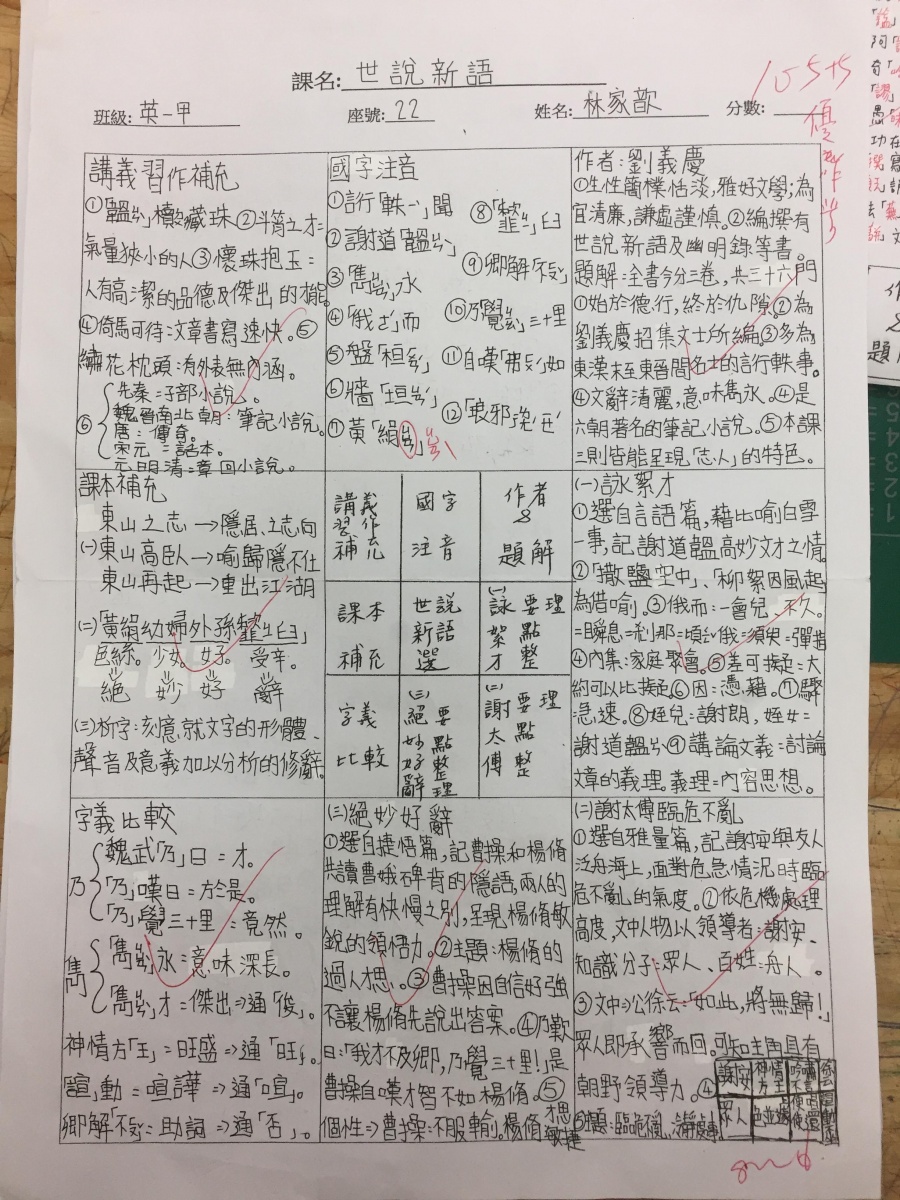 課名: 世說新語
班級: 英一甲 座號: 22 姓名: 林家歆 分數: 105+5
優
講義習作補充
①「韞ㄩㄣˋ」櫝藏珠②斗筲之才=
氣量狹小的人③懷珠抱玉=
人有高潔的品德及傑出的才能。
④倚馬可待:文章書寫速快。⑤
繡花枕頭:有外表無內涵。
⑥
先秦=子部小說。
魏晉南北朝:筆記小說。
唐:傳奇。
宋元=話本。
元明清=章回小說。
國字注音
①言行「軼ㄧˋ」聞
②謝道「韞ㄩㄣˋ」
③「雋ㄐㄩㄢˋ」永
④「俄ㄜˊ」而
⑤盤「桓ㄏㄨㄢˊ」
⑥牆「垣ㄩㄢˊ」
⑦黃「絹ㄐㄩㄢˋ」
⑧「韲ㄐㄧ」臼
⑨卿解「不ㄈㄡˇ」
⑩乃覺ㄐㄩㄝˊ三十里
⑪自嘆「弗ㄈㄨˊ」如
⑫「琅邪ㄧㄝˊ」
作者:劉義慶
①生性簡樸恬淡,雅好文學;為
宜清廉,謙虛謹慎。②編撰有
世說新語及幽明錄等書。
題解:全書今分三卷,共三十六門
①始於德行,終於仇隙②為
劉義慶招集文士所編。③多為
東漢末至東晉間名士的言行軼事。
④文辭清麗,意味雋永。④是
六朝著名的筆記小說。⑤本課
三則皆能呈現「志人」的特色。
課本補充
東山之志→隱居之志向
㈠東山高臥→喻歸隱不仕
東山再起→重出江湖
㈡「黃絹幼婦外孫韲ㄐㄧ臼」
色絲。少女。女子。受辛。
絕 妙 好 辭
㈢析字:刻意就文字的形體、
聲音及意義加以分析的修辭。
講義習作補充
國字注音
作者&題解
課本補充
世說新語選
㈠詠絮才 要點整理
字義比較
㈢絕妙好辭 要點整理
㈡謝太傅 要點整理
㈠詠絮才
①選自言語篇,藉比喻白雪
一事,記謝道韞高妙文才之情
②「撒鹽空中」、「柳絮因風起
為借喻。③俄而:一會兒、不久。
=瞬息=剎那=頃=俄=須臾=彈指
④內集:家庭聚會。⑤差可擬=大
約可以比擬⑥因=憑藉。⑦驟
急速。⑧姪兒=謝朗,姪女=
謝道韞ㄩㄣˋ⑨講論文義=討論
文章的義理。義理=內容思想。
字義比較
乃
魏武「乃」曰=才。
「乃」嘆曰=於是。
「乃」覺三十里=竟然。
雋
「雋ㄐㄩㄢˋ」永=意味深長。
「雋ㄐㄩㄣˋ」才=傑出⇒通「俊」。
神情方「王」=旺盛⇒通「旺」。
「諠」動=喧譁⇒通「喧」。
卿解「不ㄈㄡˇ」=助詞⇒通「否」。
㈢絕妙好辭
①選自捷悟篇,記曹操和楊脩
共讀曹娥碑背的隱語,兩人的
理解有快慢之別,呈現楊脩敏
銳的領悟力。②主題:楊脩的
過人才思。③曹操因自信好強
不讓楊脩先說出答案。④乃歎
曰:「我才不及卿,乃覺三十里!」是
曹操自嘆才智不如楊脩。⑤
個性⇒曹操=不服輸。楊脩=才思敏捷
㈡謝太傅臨危不亂
①選自雅量篇,記謝安與友人
泛舟海上,面對危急情況時臨
危不亂的氣度。②依危機處理
高度,文中人物以領導者:謝安、
知識分子:眾人、百姓:舟人。
③文中⇒公徐云:「如此,將無歸!」
眾人即承響而回。可知主角具有
朝野領導力。④
謝安
神情方王
吟嘯不言
眾人
色並遽